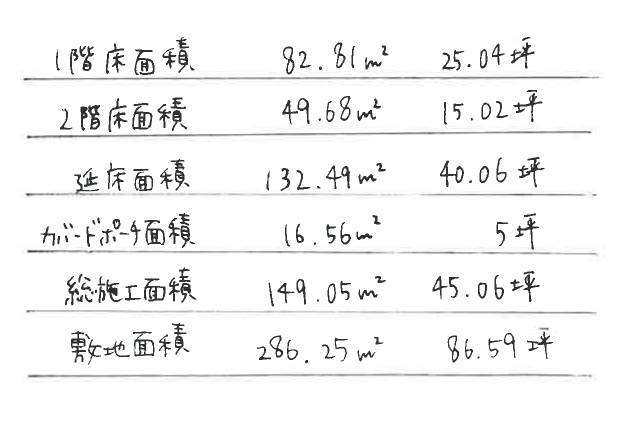 1階床面積 82.81m² 25.04坪
2階床面積 49.68m² 15.02坪
延床面積 132.49m² 40.06坪
カバードポーチ面積 16.56m² 5坪
総施工面積 149.05m² 45.06坪
敷地面積 286.25m² 86.59坪